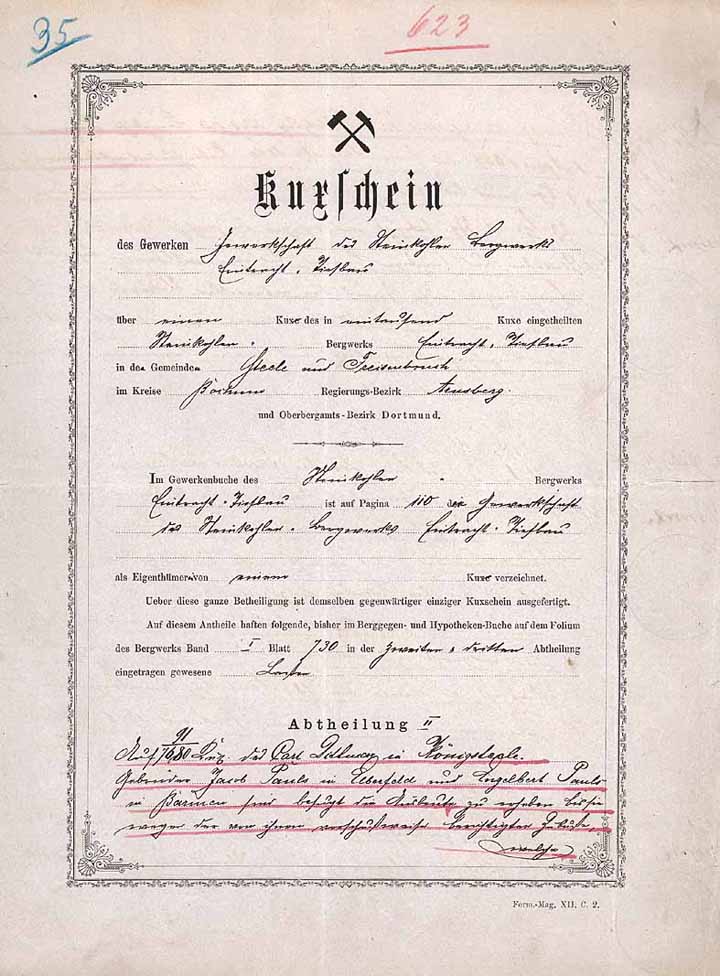 35
623
Kuxschein
des Gewerken Gewerkschaft des Steinkohlen Bergwerks
Eintracht-Tiefbau
über einen Kuxe des in eintausend Kuxe eingetheilten
Steinkohlen- Bergwerks Eintracht-Tiefbau
in den Gemeinden Steele und Freisenbruch
im Kreise Bochum Regierungs-Bezirk Arnsberg.
und Oberbergamts-Bezirk Dortmund.
Im Gewerkenbuche des Steinkohlen - Bergwerks
Eintracht-Tiefbau ist auf Pagina 110 die Gewerkschaft
des Steinkohlen-Bergwerks Eintracht-Tiefbau
als Eigenthümer von einem Kuxe verzeichnet.
Ueber diese ganze Betheiligung ist demselben gegenwärtiger einziger Kuxschein ausgefertigt.
Auf diesem Antheile haften folgende, bisher im Berggegen- und Hypotheken-Buche auf dem Folium
des Bergwerks Band I Blatt 730 in der zweiten & dritten Abtheilung
eingetragen gewesene Lasten
Abtheilung II
Auf 91/1680 Kux des Carl in Königsteele.
Gebrüder Jacob Pauls in Elberfeld und Engelbert Pauls
in Barmen sind befugt die Ausbeute zu erheben bis sie
wegen der von ihnen vorschußweise berichtigten Zubuße,
welche
Form.-Mag. XII. C. 2.